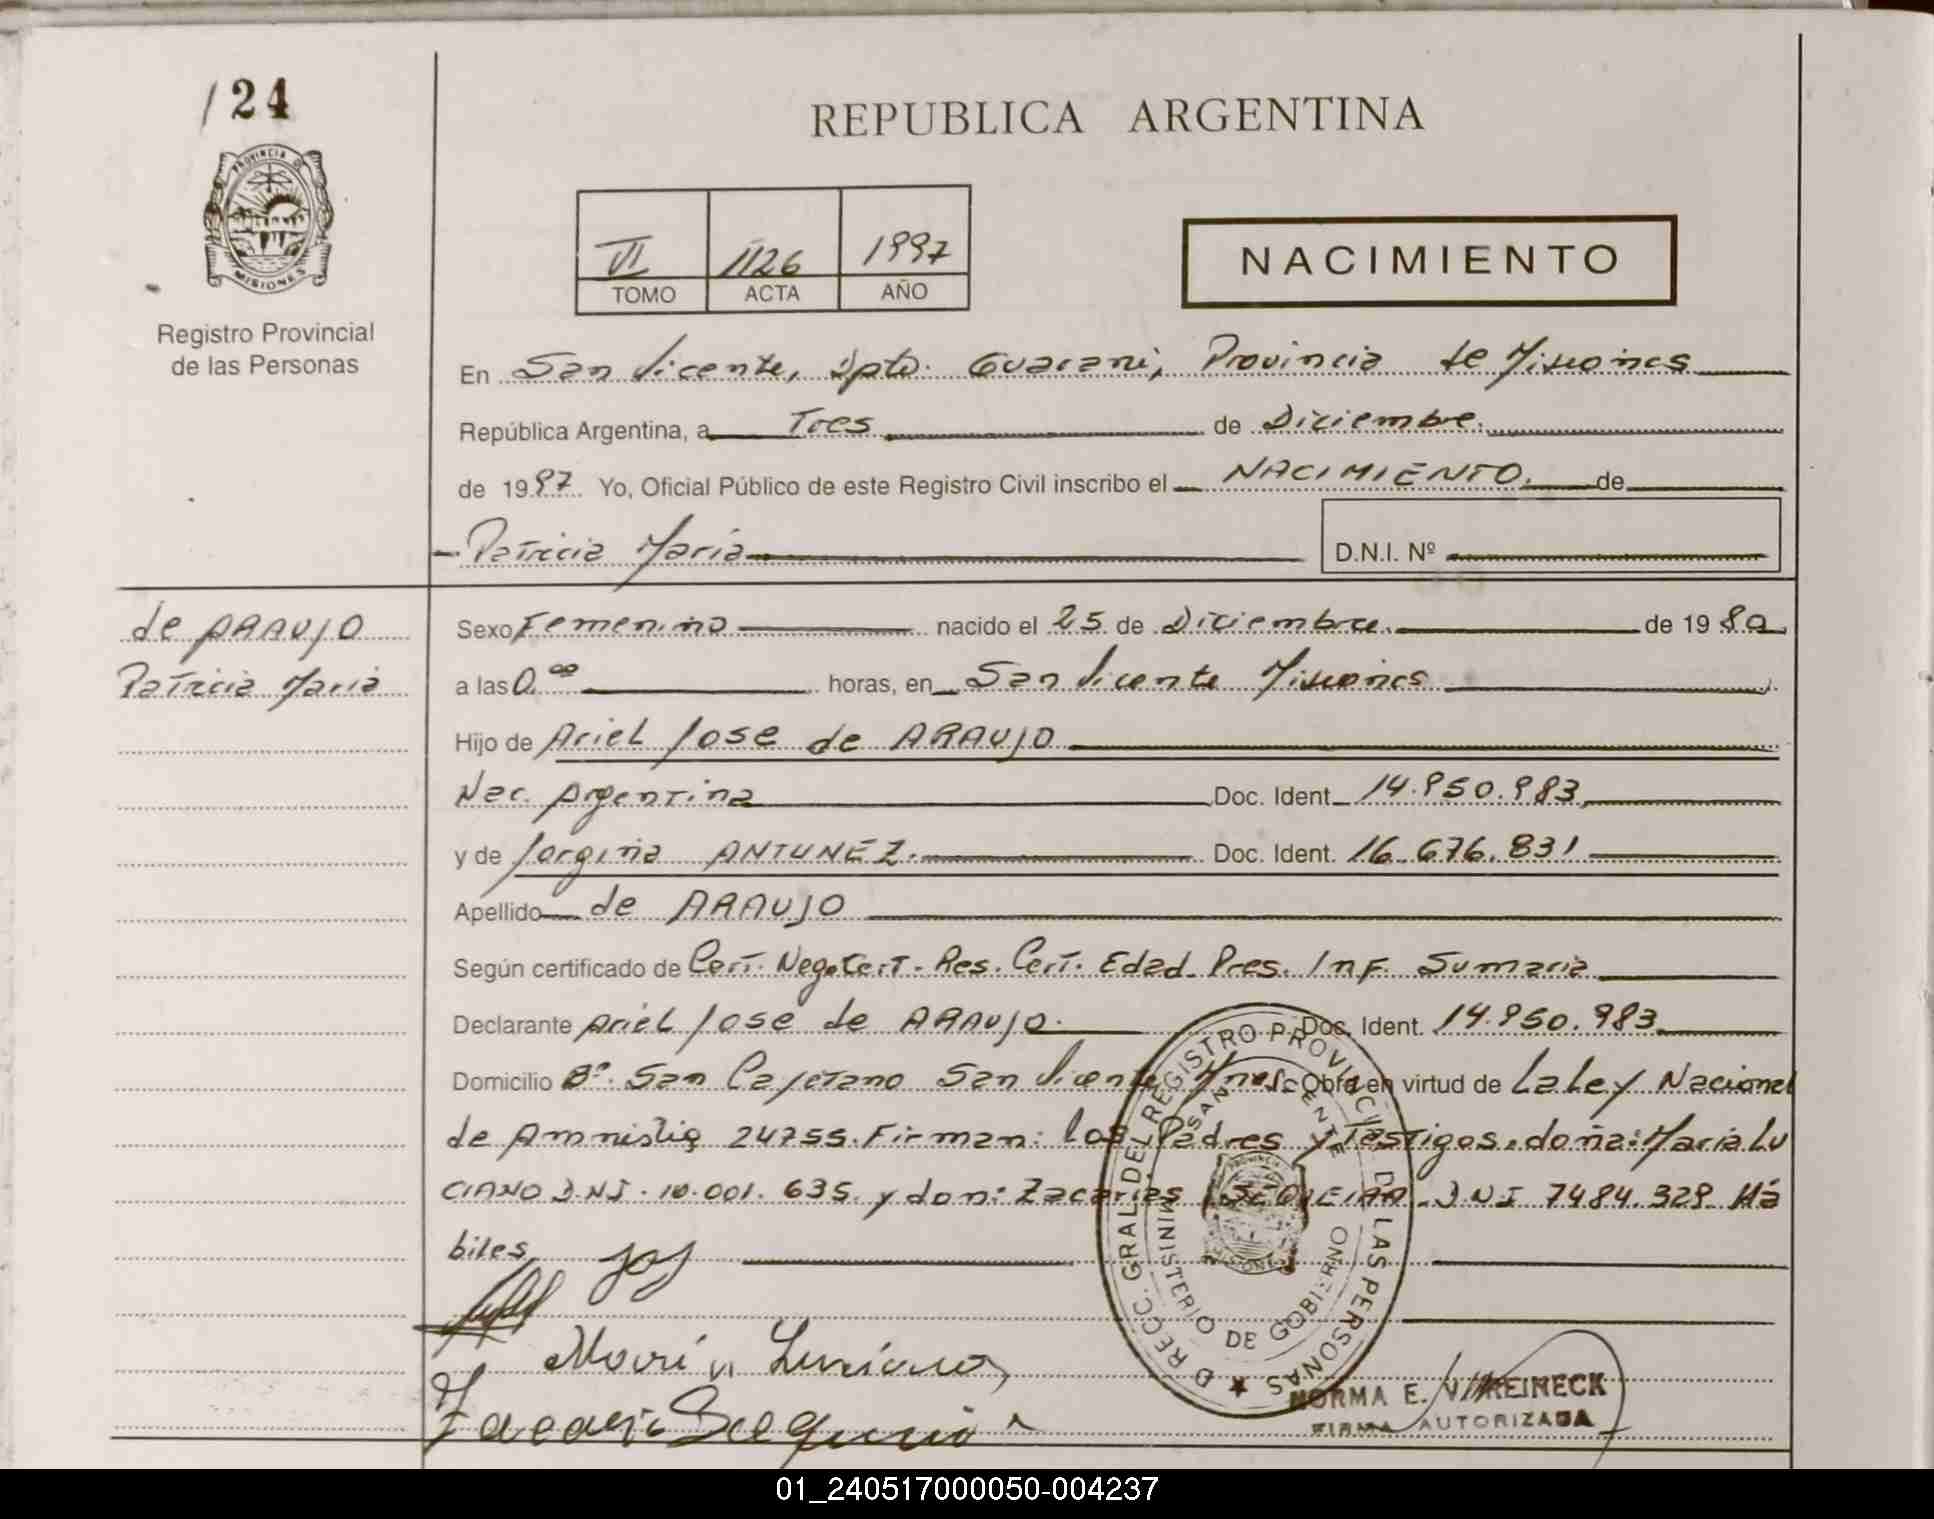 124
REPUBLICA ARGENTINA
PROVINCIA DE
MISIONES
Registro Provincial
de las Personas
VI 1126 1997
TOMO ACTA AÑO
NACIMIENTO
En San Vicente, Dpto. Guarani, Provincia de Misiones
República Argentina, a Tres de Diciembre.
de 1997. Yo, Oficial Público de este Registro Civil inscribo el NACIMIENTO. de
Patricia María D.N.I. Nº
de ARAUJO
Patricia Maria
Sexo Femenino nacido el 25 de Diciembre. de 1980
a las 0.00 horas, en San Vicente Misiones
Hijo de Ariel Jose de ARAUJO
Nac. Argentina Doc. Ident. 14.950.983
y de Jorgina ANTUNEZ. Doc. Ident. 16.676.831
Apellido de ARAUJO
Según certificado de Cert. Neg. Cert. Res. Cert. Edad Pres. Inf. Sumaria
Declarante Ariel Jose de ARAUJO. Doc. Ident. 14.950.983
Domicilio Bº. San Cayetano San Vicente Mnes. Obra en virtud de La Ley Nacional
de Amnistia 24755. Firman: los Padres y Testigos. doña: Maria Lu
CIANO D.N.I. 10.001.635. y don: Zacarias SEQUEIRA. D.N.I 7484.329. Há
biles.
María Luciano
DIRECC. GRAL. DEL REGISTRO PROVINCIAL DE LAS PERSONAS
SAN VICENTE
MINISTERIO DE GOBIERNO
NORMA E. REINECK
FIRMA AUTORIZADA
01_240517000050-004237